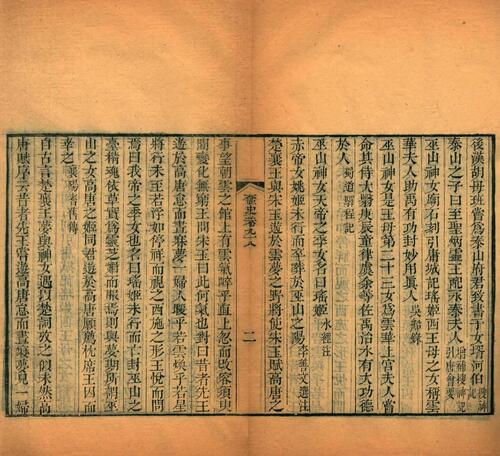 後漢胡母班嘗爲泰山府君致書于女壻河伯
泰山之子曰至聖炳靈王配永泰夫人
巫山神女廟石刻引庸城記瑤姬西王母之女稱雲
華夫人助禹有功封妙用眞人吳船錄
巫山神女王母第二十三女雲華上官夫人嘗
命其侍大翳庚辰童律虞余等佐禹治水有大功德
於人蜀道驛程記
巫山神女天帝之季女名曰瑤姬水經注
赤帝女姚姬未行而卒葬於巫山之陽李善文選注
楚襄王與宋玉遊於雲夢之野將使宋玉賦高唐之
二
事望朝雲之館上有雲氣崪乎直上忽而改容須臾
間變化無窮王問宋玉曰此何氣也對曰昔者先王
遊於高唐怠而晝寐夢一婦人曖乎若雲煥乎若星
將行未至若浮如停祥而視之西施之形王悅而問
焉曰我帝之季女也名曰瑤姬未行而亡封巫山之
臺精魂依草實爲靈之
而服焉則與夢期所謂巫
山之女高唐之姬聞君遊於高唐願薦枕席王因而
幸之襄陽耆舊傳
自古言楚襄王夢與神女遇以楚詞攷之似未然高
唐賦序云昔者先王嘗遊高唐怠而晝寐夢見一婦